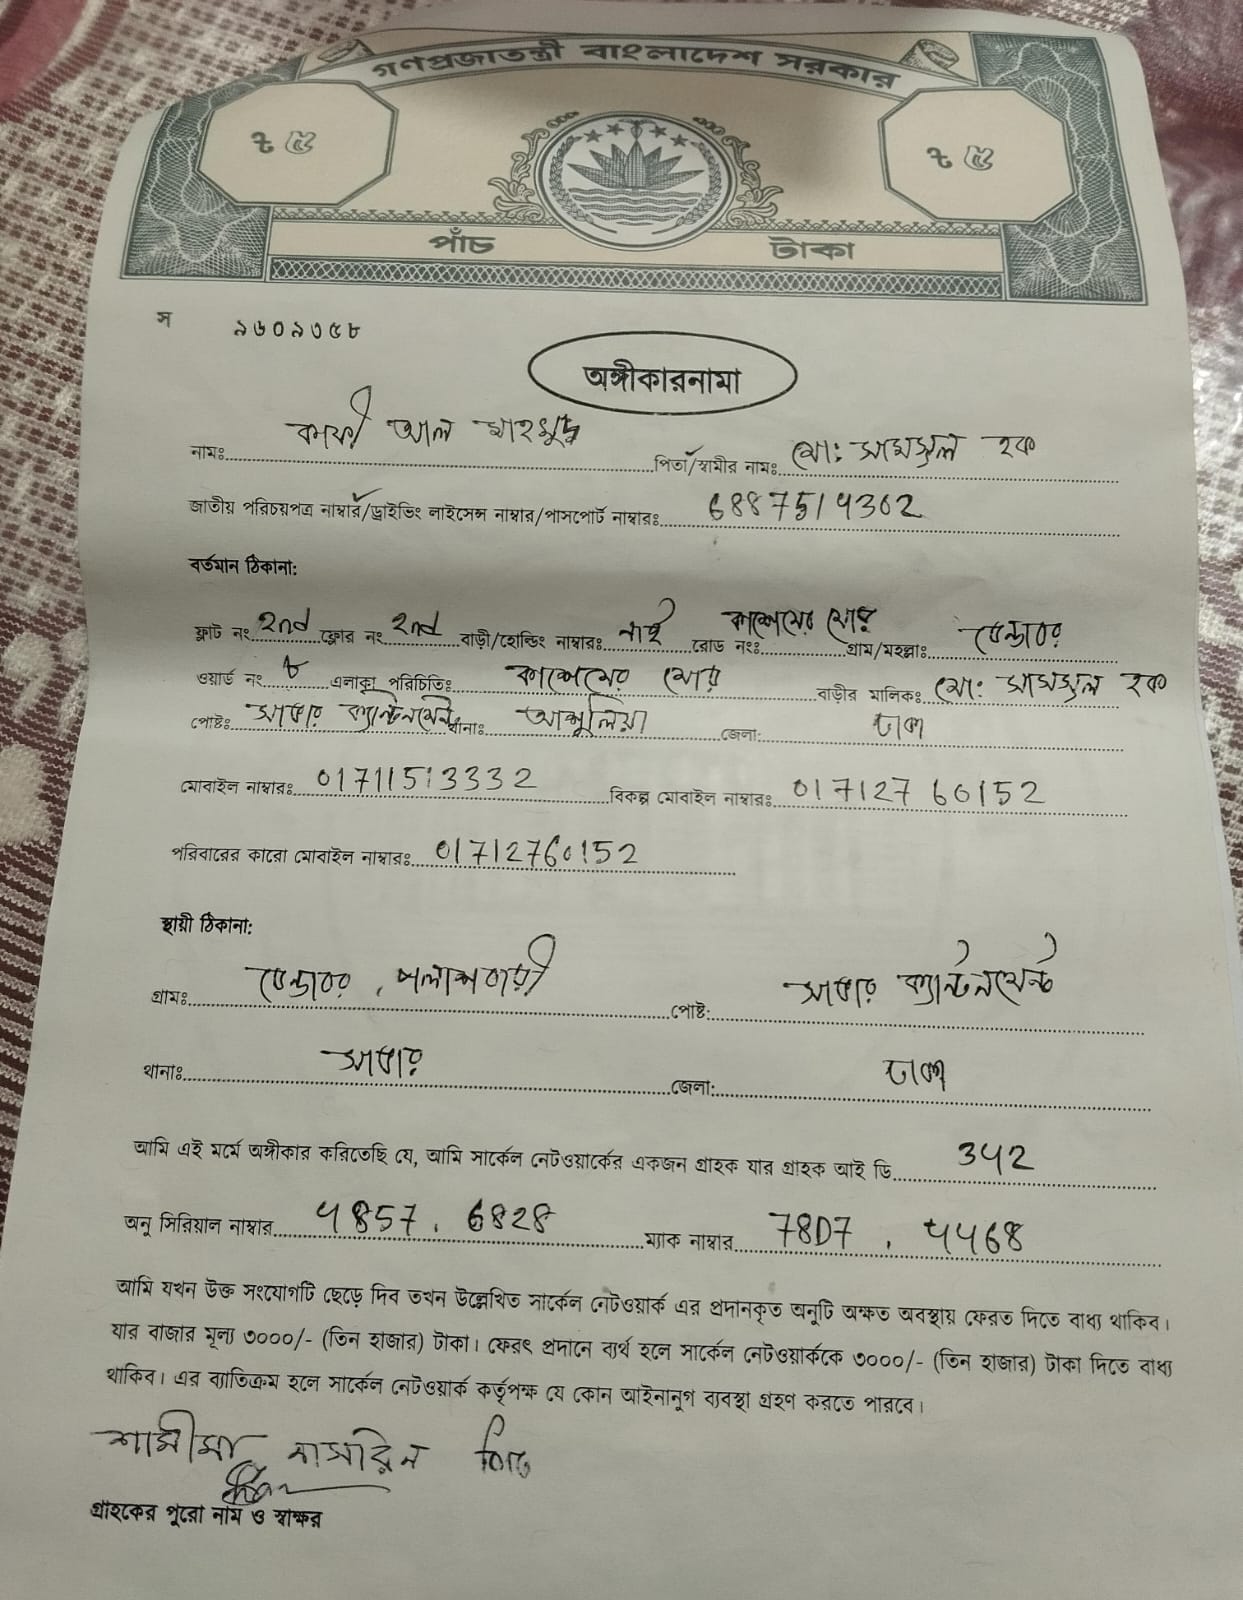 গণপ্রজাতন্ত্রী বাংলাদেশ সরকার
৳ ৫ ৳ ৫
পাঁচ টাকা
স ৯৬০৯৩৫৮
অঙ্গীকারনামা
নামঃ কাফী আল মাহমুদ পিতা/স্বামীর নামঃ মো: সামসুল হক
জাতীয় পরিচয়পত্র নাম্বার/ড্রাইভিং লাইসেন্স নাম্বার/পাসপোর্ট নাম্বারঃ 6887514302
বর্তমান ঠিকানা:
ফ্লাট নং 2nd ফ্লোর নং 2nd বাড়ী/হোল্ডিং নাম্বারঃ নাই রোড নংঃ কাশেমের মোড় গ্রাম/মহল্লাঃ ডেন্ডাবর
ওয়ার্ড নং ৮ এলাকা পরিচিতিঃ কাশেমের মোড় বাড়ীর মালিকঃ মো: সামসুল হক
পোষ্টঃ সাভার ক্যান্টনমেন্ট থানাঃ আশুলিয়া জেলা: ঢাকা
মোবাইল নাম্বারঃ 01711513332 বিকল্প মোবাইল নাম্বারঃ 01712760152
পরিবারের কারো মোবাইল নাম্বারঃ 01712760152
স্থায়ী ঠিকানা:
গ্রামঃ ডেন্ডাবর, পলাশবাড়ী পোষ্ট: সাভার ক্যান্টনমেন্ট
থানাঃ সাভার জেলা: ঢাকা
আমি এই মর্মে অঙ্গীকার করিতেছি যে, আমি সার্কেল নেটওয়ার্কের একজন গ্রাহক যার গ্রাহক আই ডি 342
অনু সিরিয়াল নাম্বার 4857. 6828 ম্যাক নাম্বার 78D7. 4468
আমি যখন উক্ত সংযোগটি ছেড়ে দিব তখন উল্লেখিত সার্কেল নেটওয়ার্ক এর প্রদানকৃত অনুটি অক্ষত অবস্থায় ফেরত দিতে বাধ্য থাকিব।
যার বাজার মূল্য ৩০০০/- (তিন হাজার) টাকা। ফেরৎ প্রদানে ব্যর্থ হলে সার্কেল নেটওয়ার্ককে ৩০০০/- (তিন হাজার) টাকা দিতে বাধ্য
থাকিব। এর ব্যাতিক্রম হলে সার্কেল নেটওয়ার্ক কর্তৃপক্ষ যে কোন আইনানুগ ব্যবস্থা গ্রহণ করতে পারবে।
শামীমা নাসরিন
গ্রাহকের পুরো নাম ও স্বাক্ষর